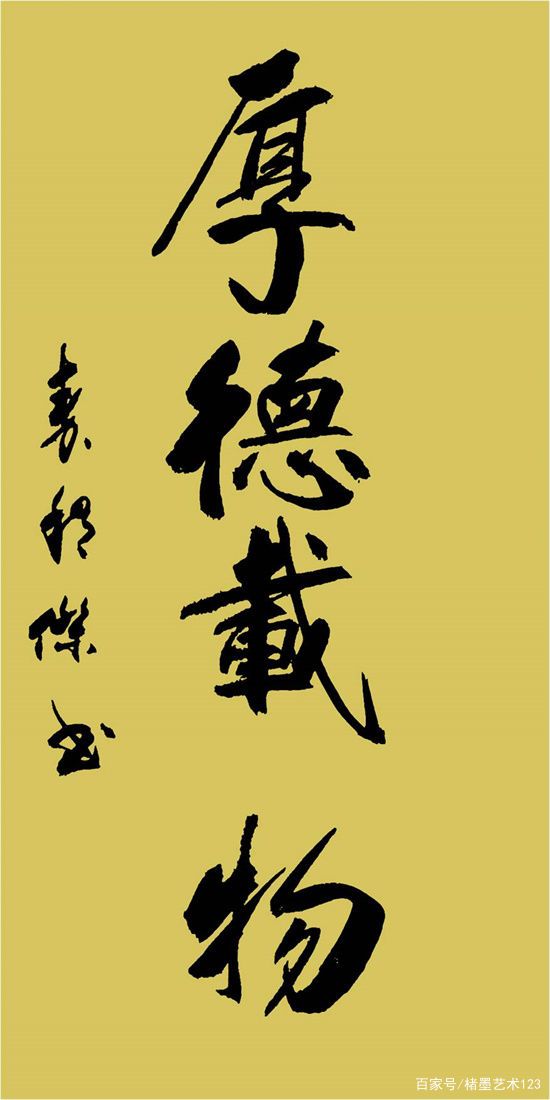 厚德載物
袁稱傑书
百家号/楮墨艺术123